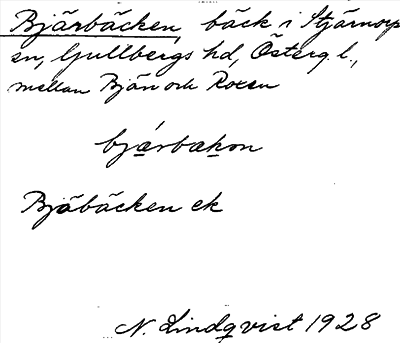 Bjärbäcken, bäck i Stjärnorp
sn, Gullbergs hd, Österg. l.,
mellan Bjän och Roxen
bjárbakon
Bjäbäcken ek
N. Lindqvist 1928